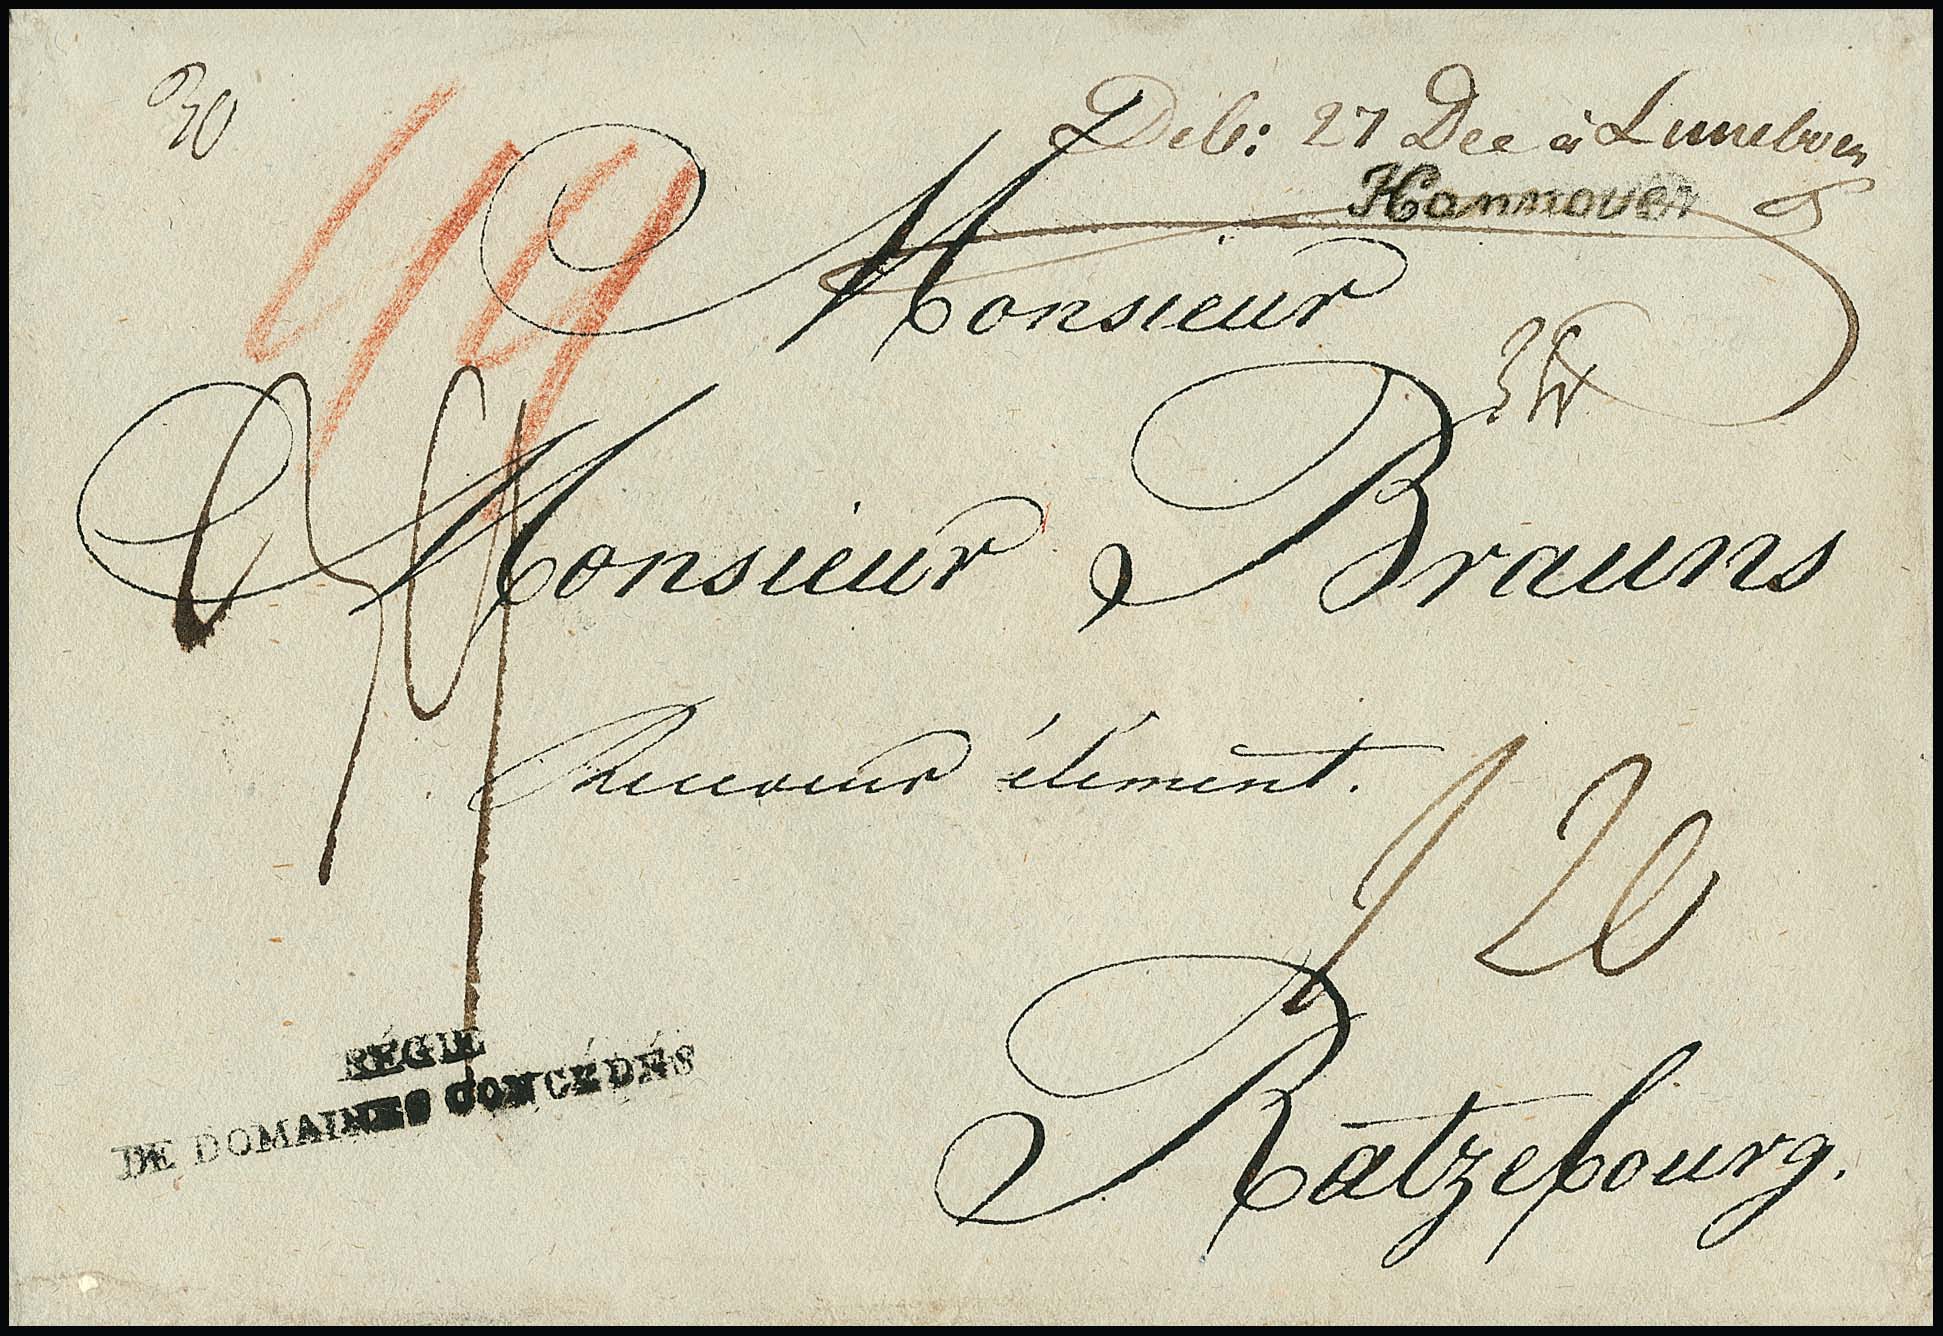 30
Deb: 27 Dec à Lunebour
Hannover
Monsieur
Monsieur Brauns
Receveur élement.
20
Ratzebourg.
RÉGIE
DE DOMAINES CONCÉDÉS